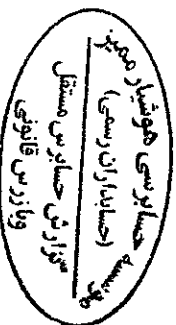 موسسه حسابرسی هوشیار ممیز
(حسابداران رسمی)
گزارش حسابرس مستقل
وبازرس قانونی